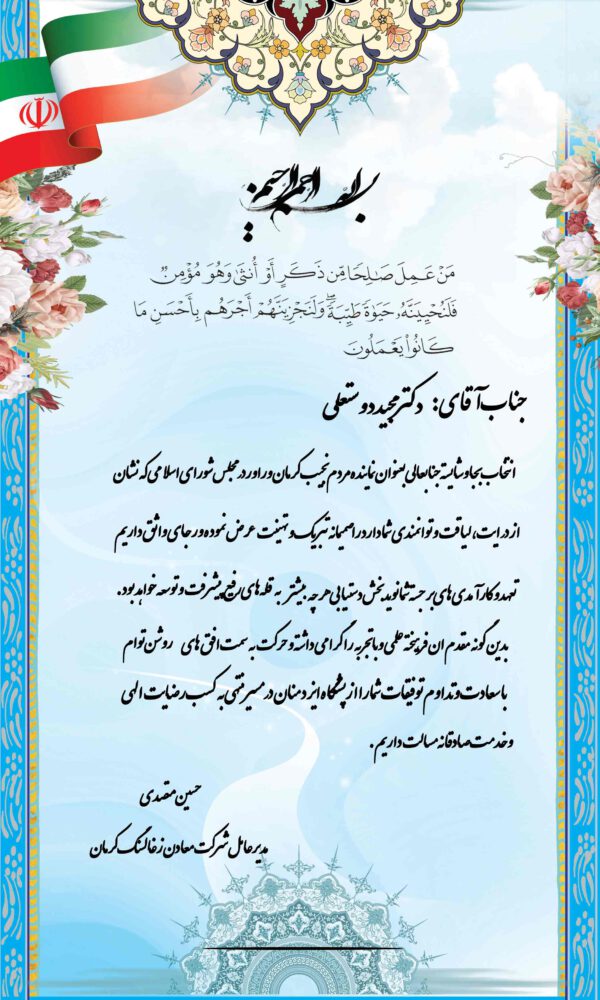 بسم الله الرحمن الرحیم
مَنْ عَمِلَ صَـٰلِحًا مِّن ذَكَرٍ أَوْ أُنثَىٰ وَهُوَ مُؤْمِنٌ
فَلَنُحْيِيَنَّهُۥ حَيَوٰةً طَيِّبَةً ۖ وَلَنَجْزِيَنَّهُمْ أَجْرَهُم بِأَحْسَنِ مَا
كَانُوا۟ يَعْمَلُونَ
جناب آقای: دکتر مجید دوستعلی
انتخاب بجا و شایسته جنابعالی بعنوان نماینده مردم نجیب کرمان و راور در مجلس شورای اسلامی که نشان
از درایت، لیاقت و توانمندی شما دارد را صمیمانه تبریک و تهنیت عرض نموده و رجای واثق داریم
تعهد و کارآمدی های برجسته شما نوید بخش دستیابی هر چه بیشتر به قله های رفیع پیشرفت و توسعه خواهد بود.
بدین گونه مقدم ان فریخته علمی و با تجربه را گرامی داشته و حرکت به سمت افق های روشن توام
با سعادت و تداوم توفیقات شما را از پیشگاه ایزد منان در مسیر منتهی به کسب رضایت الهی
و خدمت صادقانه مسالت داریم.
حسین مقصدی
مدیر عامل شرکت معادن زغالسنگ کرمان